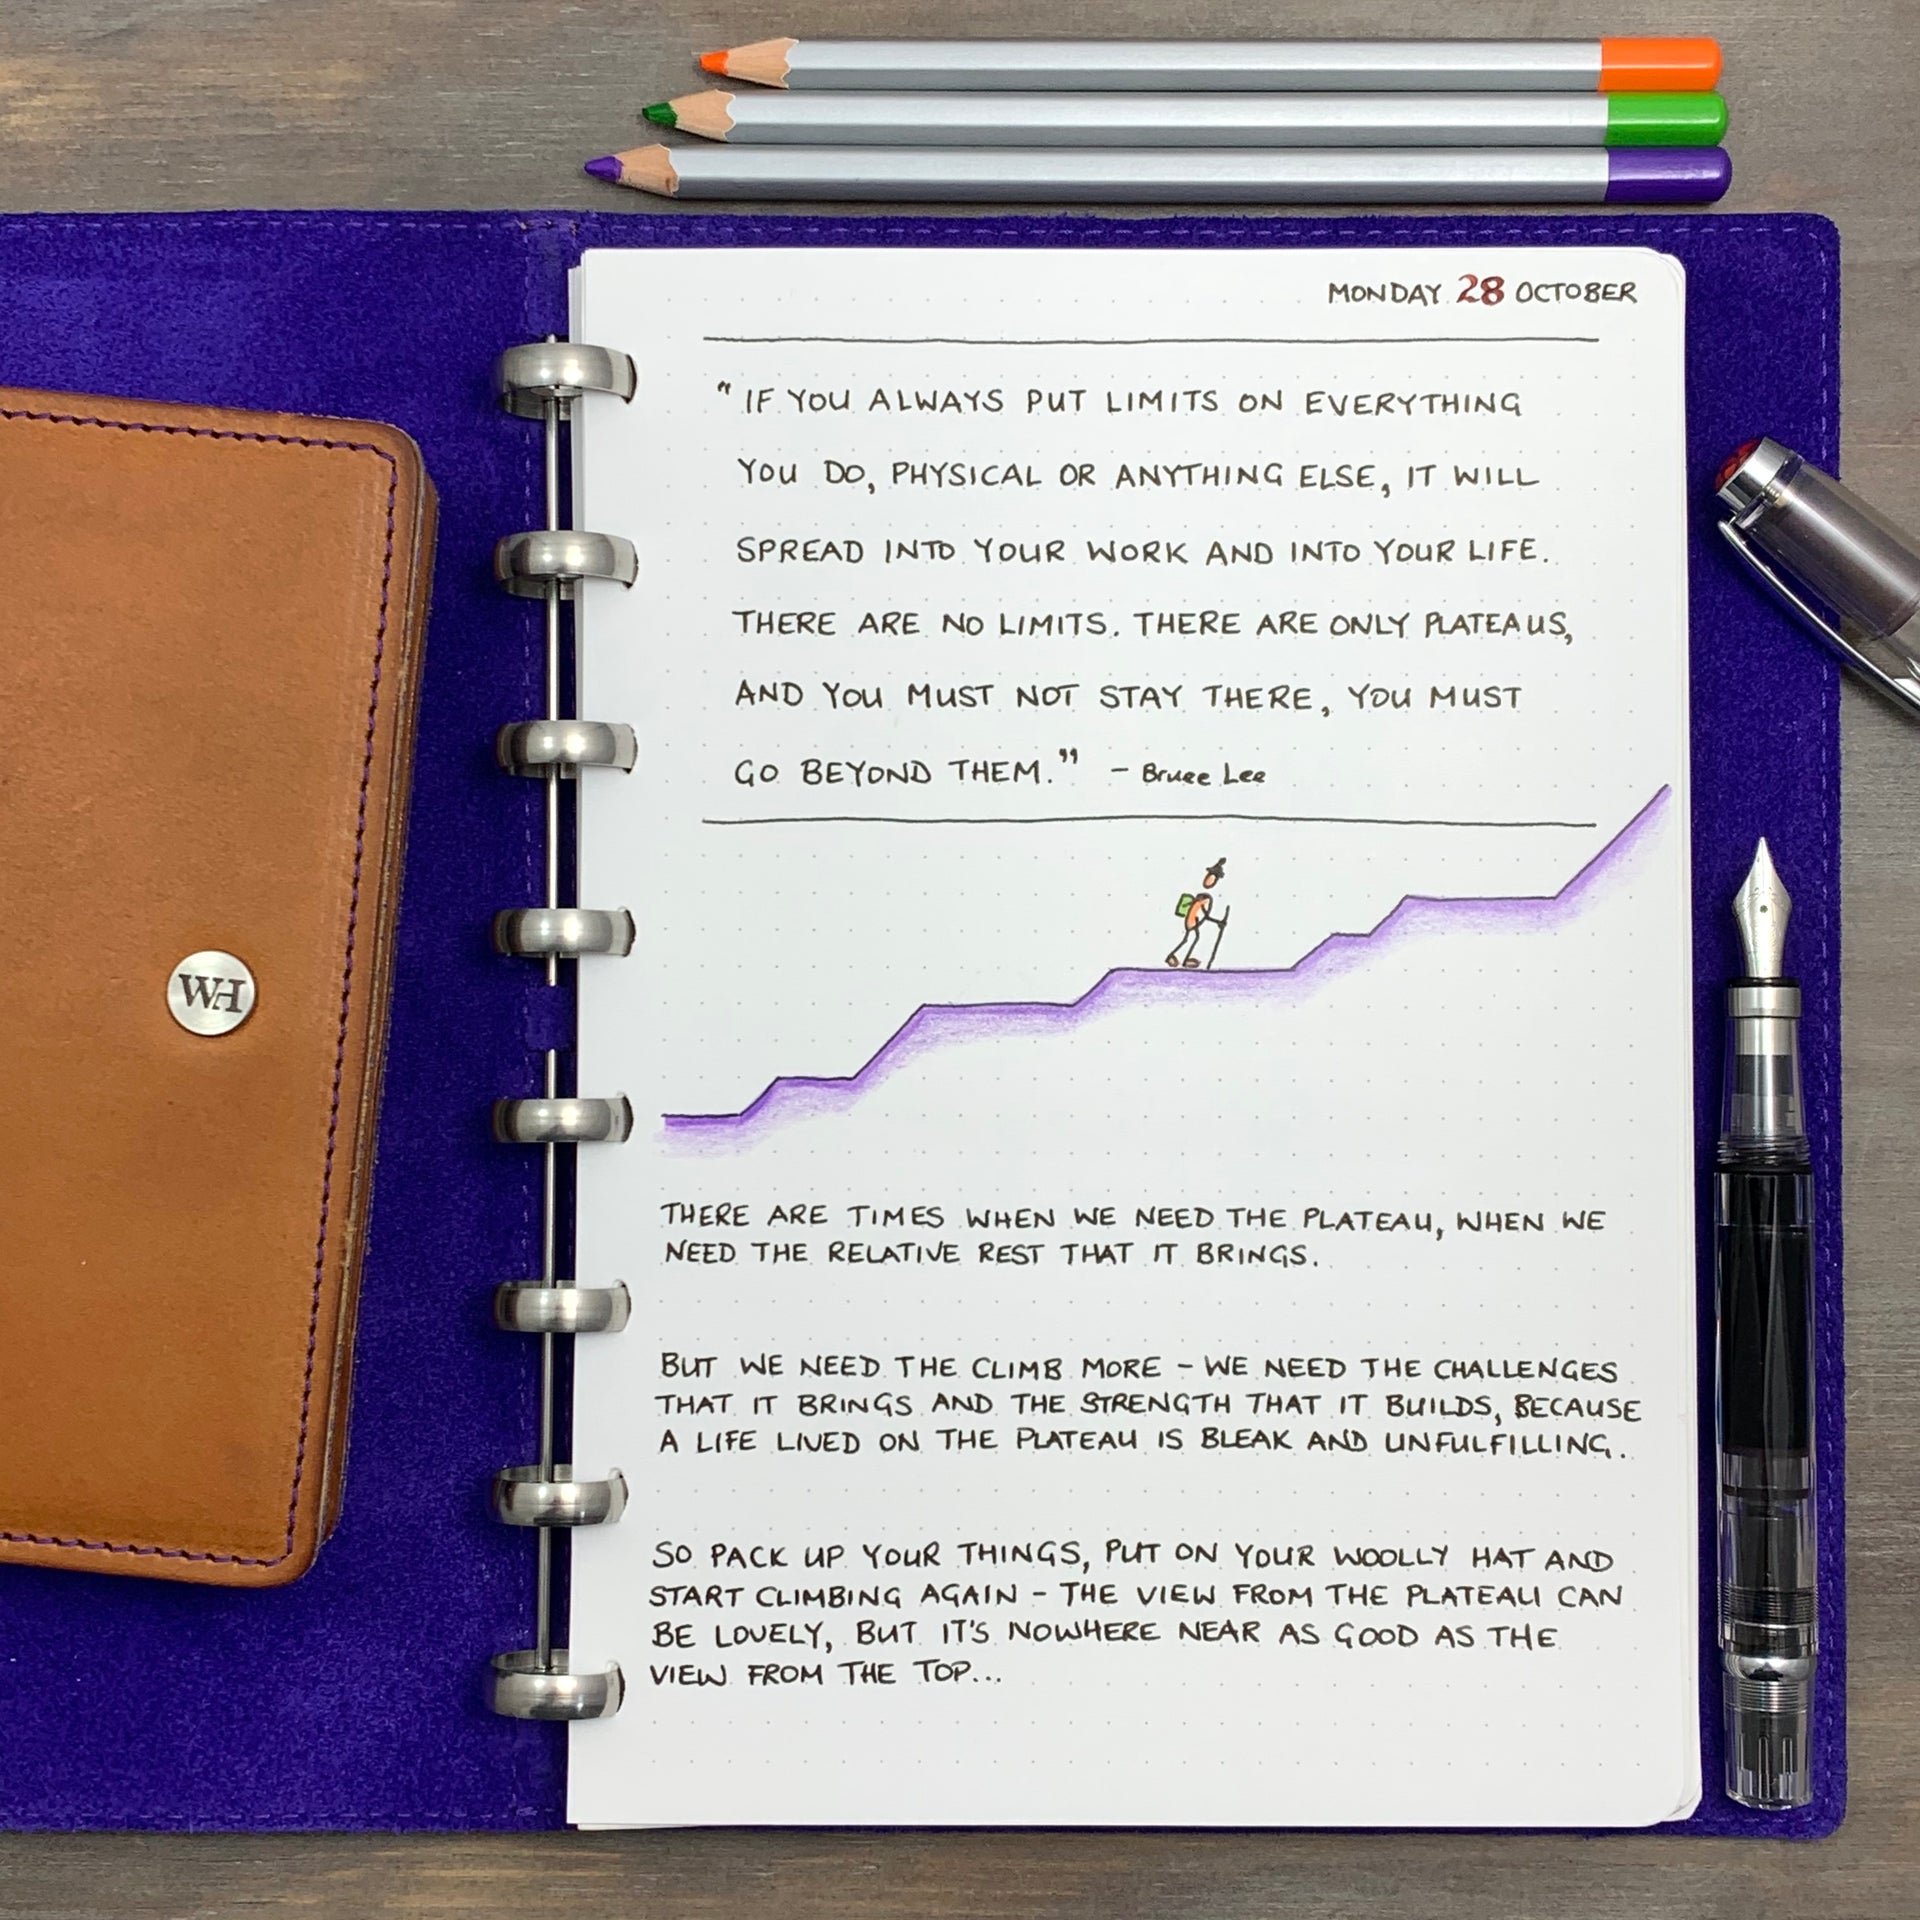 MONDAY 28 OCTOBER
"IF YOU ALWAYS PUT LIMITS ON EVERYTHING
YOU DO, PHYSICAL OR ANYTHING ELSE, IT WILL
SPREAD INTO YOUR WORK AND INTO YOUR LIFE.
THERE ARE NO LIMITS. THERE ARE ONLY PLATEAUS,
AND YOU MUST NOT STAY THERE, YOU MUST
GO BEYOND THEM." - Bruce Lee
WH
THERE ARE TIMES WHEN WE NEED THE PLATEAU, WHEN WE
NEED THE RELATIVE REST THAT IT BRINGS.
BUT WE NEED THE CLIMB MORE - WE NEED THE CHALLENGES
THAT IT BRINGS AND THE STRENGTH THAT IT BUILDS, BECAUSE
A LIFE LIVED ON THE PLATEAU IS BLEAK AND UNFULFILLING.
SO PACK UP YOUR THINGS, PUT ON YOUR WOOLLY HAT AND
START CLIMBING AGAIN - THE VIEW FROM THE PLATEAU CAN
BE LOVELY, BUT IT'S NOWHERE NEAR AS GOOD AS THE
VIEW FROM THE TOP...